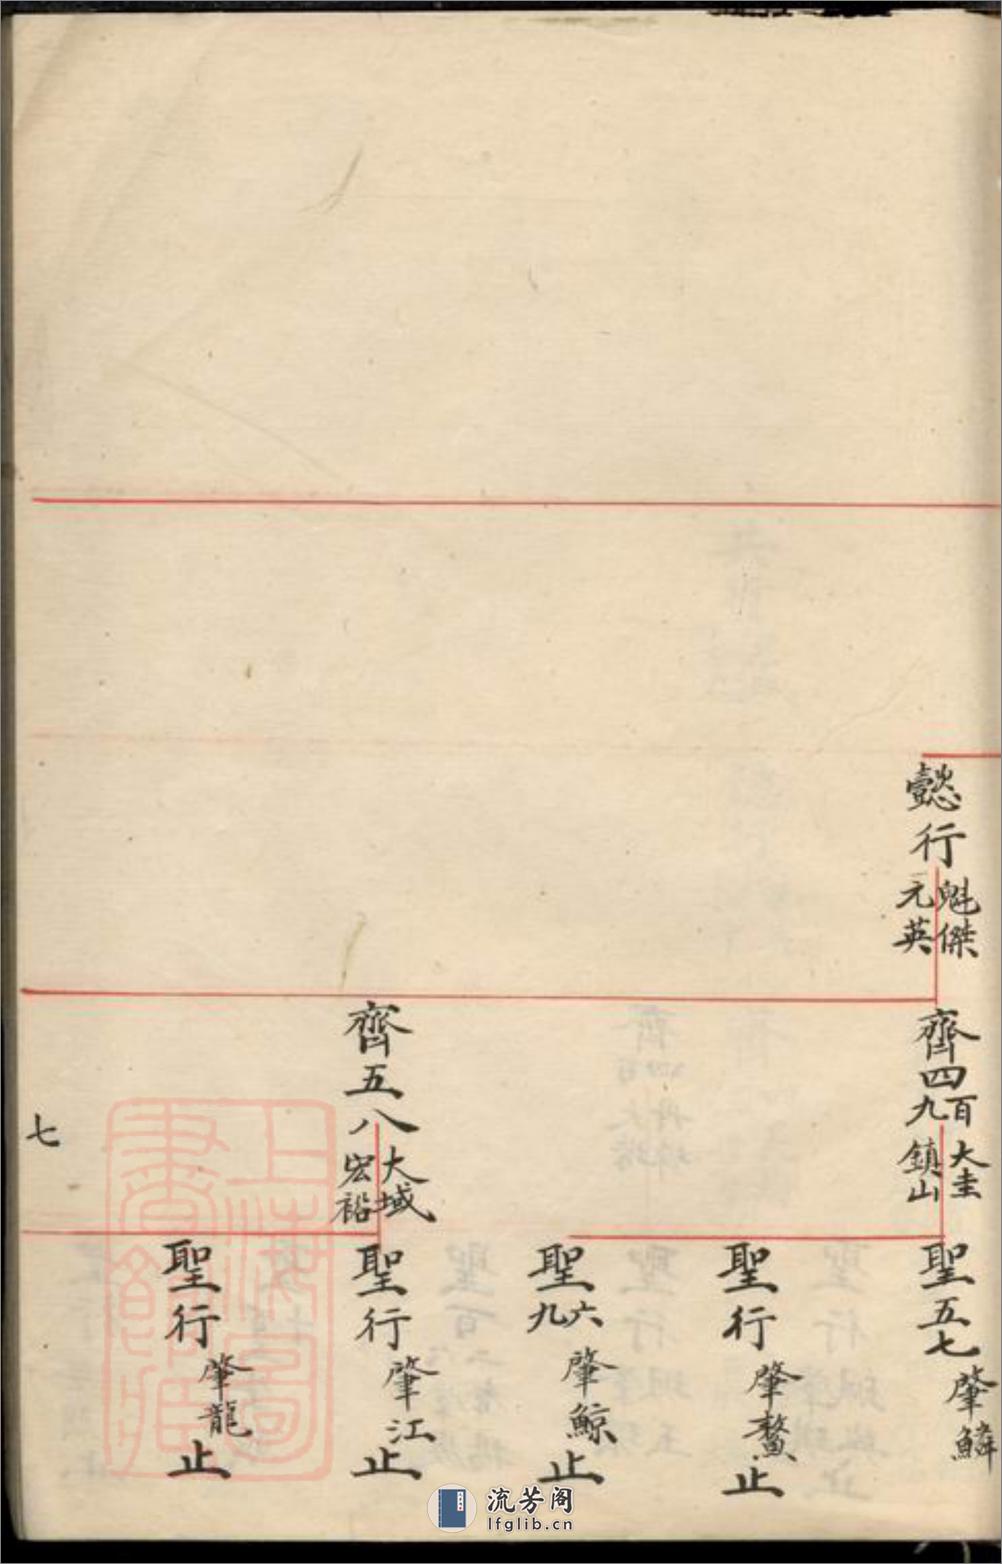 懿行 魁傑 元英
齊四百九 大圭 鎮山
齊五八 大域 宏裕
聖五七 肇鱗
聖行 肇鰲 止
聖六九 肇鯨 止
聖行 肇江 止
聖行 肇龍 止
七
上海圖書館藏
流芳阁
lfglib.cn